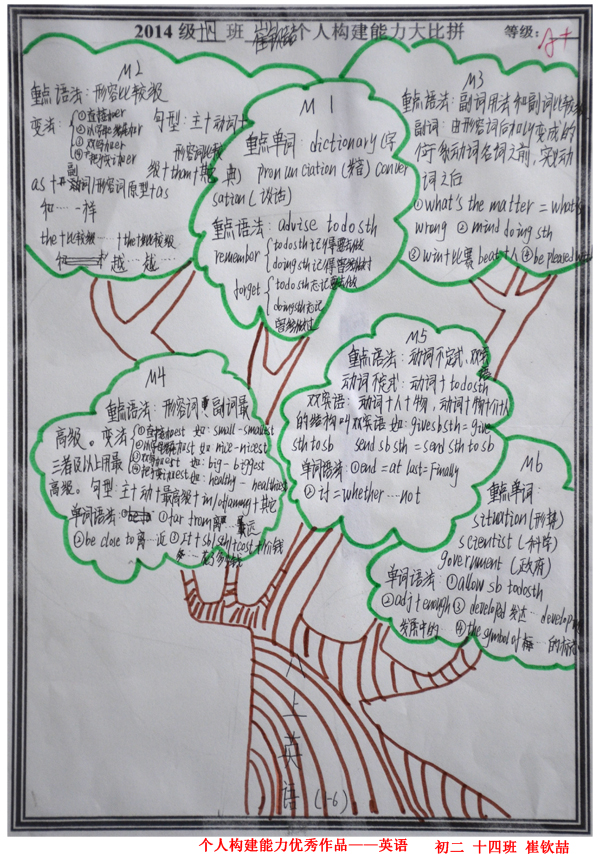 2014级十四班 崔钦喆 个人构建能力大比拼 等级: A+
M2
重点语法：形容比较级
变法：
①直接加er
②以字母e结尾加r
③双写加er
④把y变i加er
句型：主+动词+
形容词比较
级+than+其它
as+副词/形容词原型+as
和……一样
the+比较级……+the+比较级
越……越……
M1
重点单词：dictionary(字
典) pronunciation(发音) conver
sation(谈话)
重点语法：advise to do sth
remember
to do sth 记得要去做
doing sth 记得曾经做过
forget
to do sth 忘记要去做
doing sth 忘记
曾经做过
M3
重点语法：副词用法和副词比较级
副词：由形容词后加ly变成的
位于系动词名词之前，实义动
词之后
①what's the matter = what's
wrong ②mind doing sth
③win+比赛 beat+人 ④be pleased with
M4
重点语法：形容词、副词最
高级。变法
①直接加est 如：small-smallest
②以字母e结尾加st 如：nice-nicest
③双写加est 如：big-biggest
④把y变i加est 如：healthy-healthiest
三者及以上用最
高级。句型：主+动+最高级+in/of/among+其它
单词语法：①far from 离……远
②be close to 离…近 ③It+sb/sth+cost+价钱
花了多少钱
M5
重点语法：动词不定式、双宾语
动词不定式：动词+to do sth
双宾语：动词+人+物，动词+物+介+人
的结构叫双宾语 如：give sb sth=give
sth to sb send sb sth=send sth to sb
单词语法：①end=at last=Finally
②if=whether…not
M6
重点单词：
situation(形势)
scientist(科学家)
government(政府)
单词语法：①allow sb to do sth
②adj+enough ③developed 发达… developing
发展中的… ④the symbol of …的标志
八上英语(1-6)
个人构建能力优秀作品——英语 初二 十四班 崔钦喆